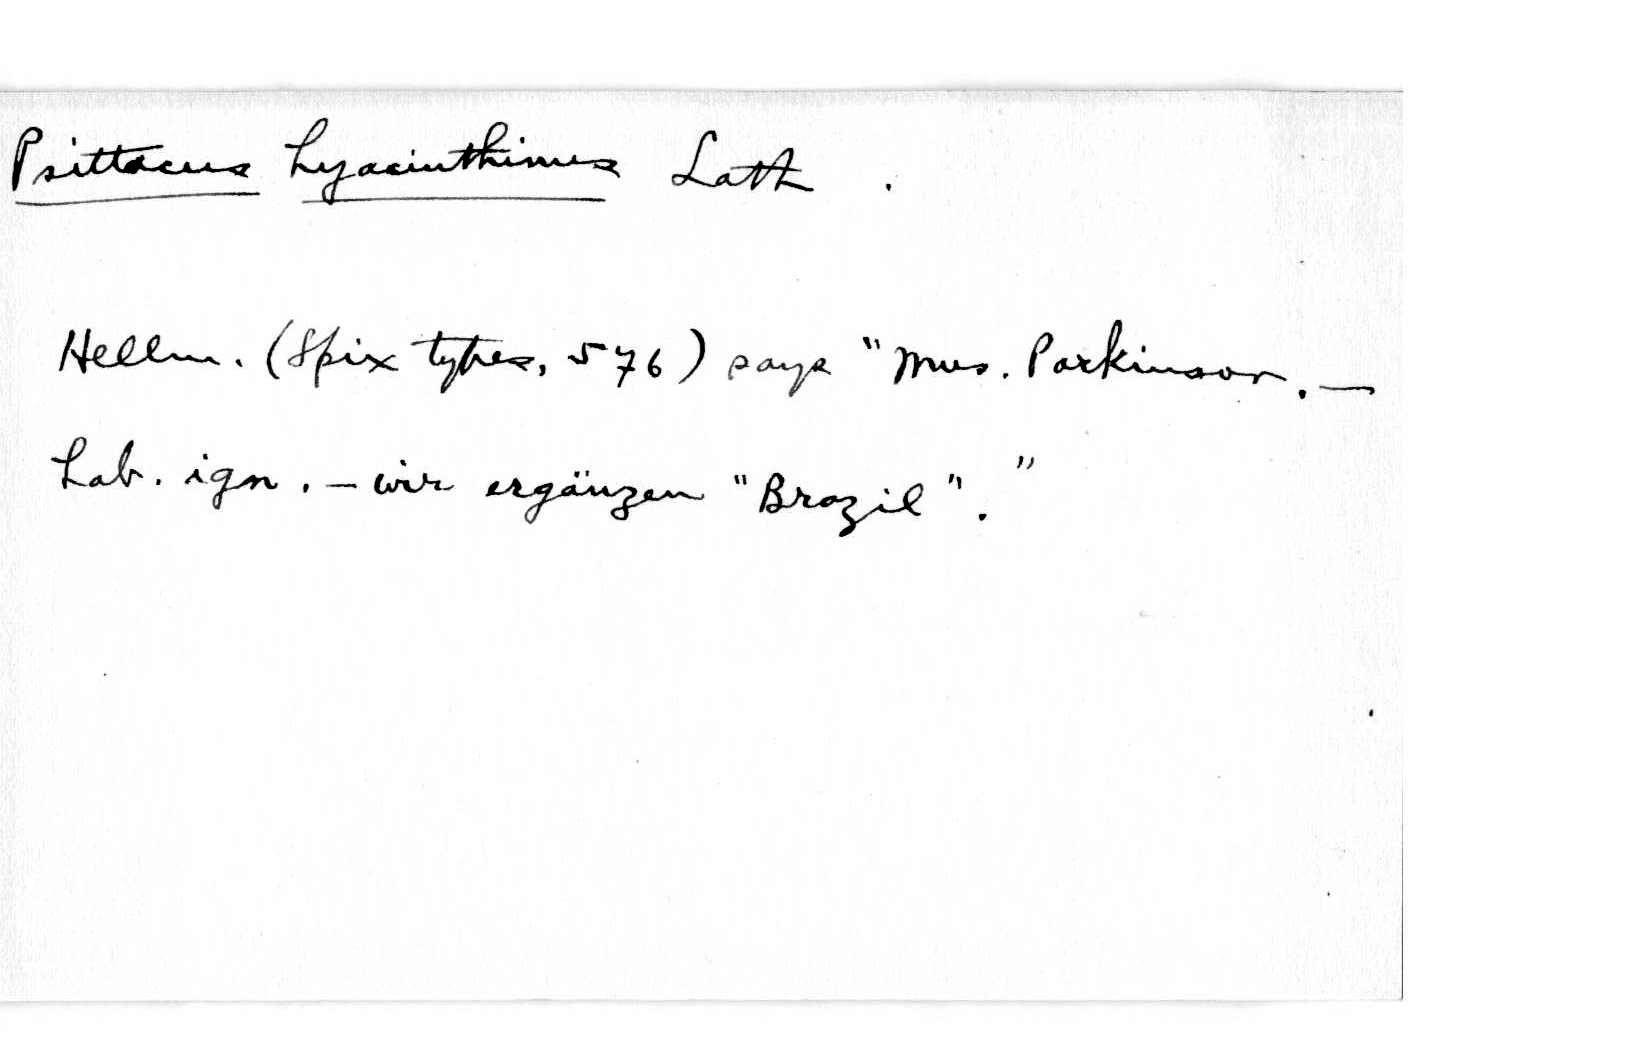 Psittacus hyacinthinus Lath.
Hellm. (Spix types, 576) says "Mus. Parkinson. —
hab. ign. — wir ergänzen "Brazil"."